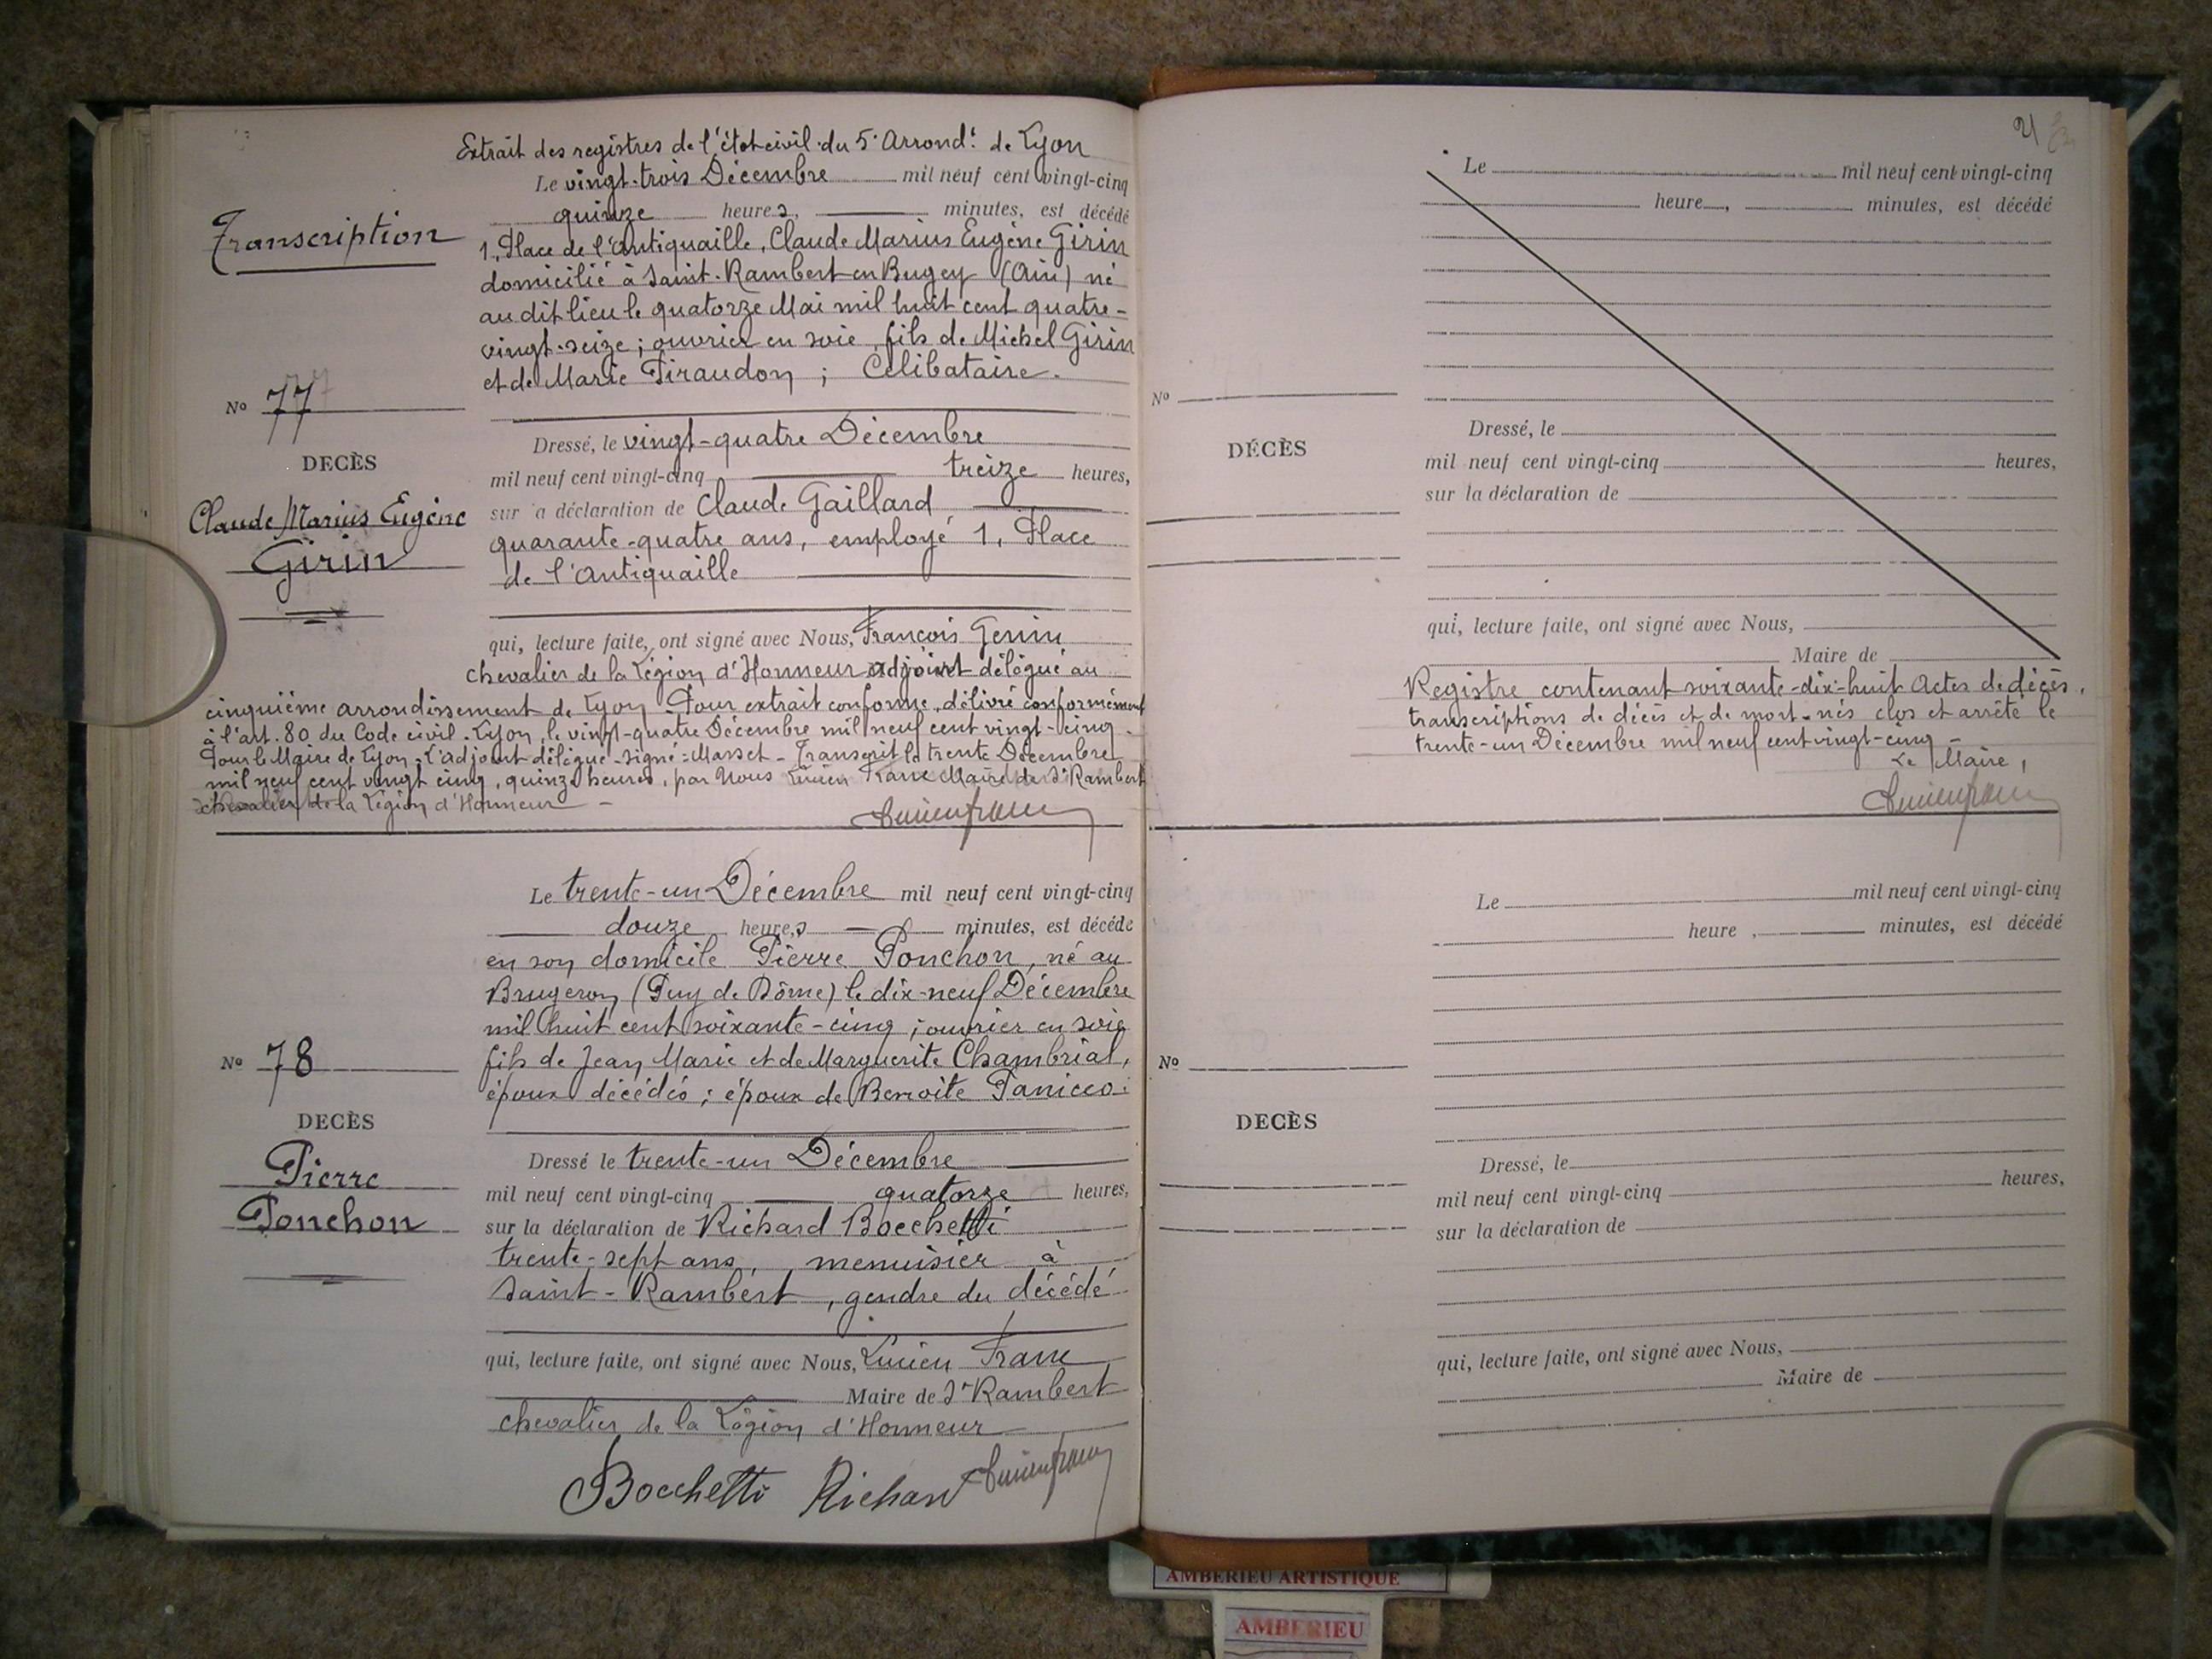 Extrait des registres de l'état civil du 5e Arrondt de Lyon
Le vingt-trois Décembre mil neuf cent vingt-cinq
quinze heures, minutes, est décédé
1, Place de l'Antiquaille, Claude Marius Eugène Girin
domicilié à Saint-Rambert en Bugey (Ain) né
au dit lieu le quatorze Mai mil huit cent quatre-
vingt-seize ; ouvrier en soie, fils de Michel Girin
et de Marie Piraudon ; Célibataire.
Transcription
No 77
DECÈS
Claude Marius Eugène
Girin
Dressé, le vingt-quatre Décembre
mil neuf cent vingt-cinq treize heures,
sur a déclaration de Claude Gaillard
quarante-quatre ans, employé 1, Place
de l'Antiquaille
qui, lecture faite, ont signé avec Nous, François Genin
chevalier de la Légion d'Honneur adjoint délégué au
cinquième arrondissement de Lyon - Pour extrait conforme, délivré conformément
à l'art. 80 du Code civil. Lyon, le vingt-quatre Décembre mil neuf cent vingt-cinq.
Pour le Maire de Lyon - L'adjoint délégué - signé : Masset - Transcrit le trente Décembre
mil neuf cent vingt cinq, quinze heures, par Nous Lucien Franc Maire de St Rambert
chevalier de la Légion d'Honneur -
Lucien Franc
Le trente-un Décembre mil neuf cent vingt-cinq
douze heures minutes, est décédé
en son domicile Pierre Ponchon, né au
Brugeron (Puy de Dôme) le dix-neuf Décembre
mil huit cent soixante-cinq ; ouvrier en soie
fils de Jean Marie et de Marguerite Chambrial,
époux décédés ; époux de Benoite Panicco.
No 78
DECÈS
Pierre
Ponchon
Dressé le trente-un Décembre
mil neuf cent vingt-cinq quatorze heures,
sur la déclaration de Richard Bocchetti
trente-sept ans, menuisier à
Saint-Rambert, gendre du décédé
qui, lecture faite, ont signé avec Nous, Lucien Franc
Maire de St Rambert
chevalier de la Légion d'Honneur
Bocchetti Richard Lucien Franc
Le mil neuf cent vingt-cinq
heure , minutes, est décédé
No
DÉCÈS
Dressé, le
mil neuf cent vingt-cinq heures,
sur la déclaration de
qui, lecture faite, ont signé avec Nous,
Maire de
Registre contenant soixante-dix-huit Actes de décès,
transcriptions de décès et de mort-nés clos et arrêté le
trente-un Décembre mil neuf cent vingt-cinq -
Le Maire,
Lucien Franc
Le mil neuf cent vingt-cinq
heure , minutes, est décédé
No
DECÈS
Dressé, le
mil neuf cent vingt-cinq heures,
sur la déclaration de
qui, lecture faite, ont signé avec Nous,
Maire de
AMBERIEU ARTISTIQUE
AMBERIEU